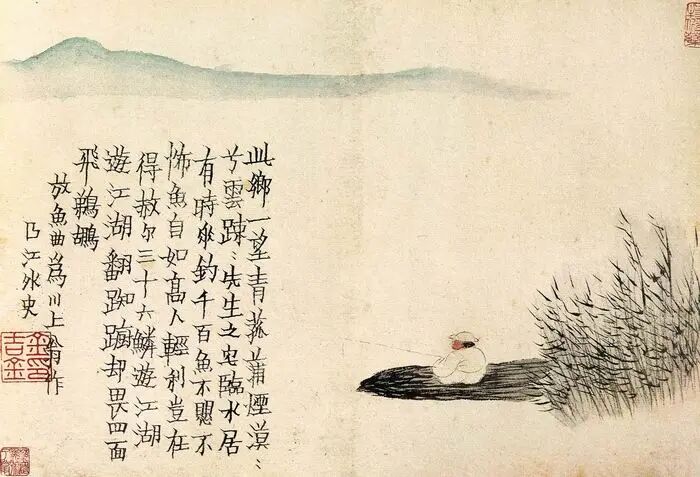 此鄉一望青菰蒲煙漠〻
兮雲踈〻先生之宅臨水居
有時垂釣千百魚不愳不
怖魚自如高人輕利豈在
得赦尔三十六鱗遊江湖
遊江湖翻踟躕却畏四面
飛鵜鶘
放魚曲為川上翁作
曲江外史
金吉金印